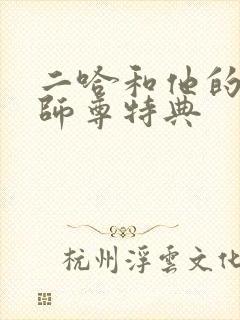 二哈和他的
師尊特典
杭州浮雲文化